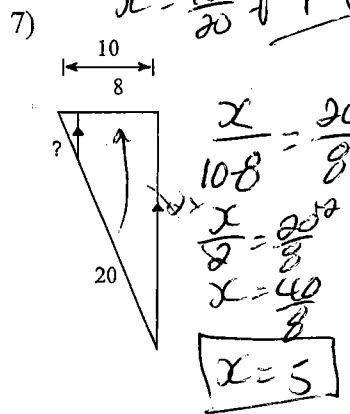 x = 20
7)
10
8
?
20
x/10-8 = 20/8
x/2 = 20/8
x = 40/8
x = 5